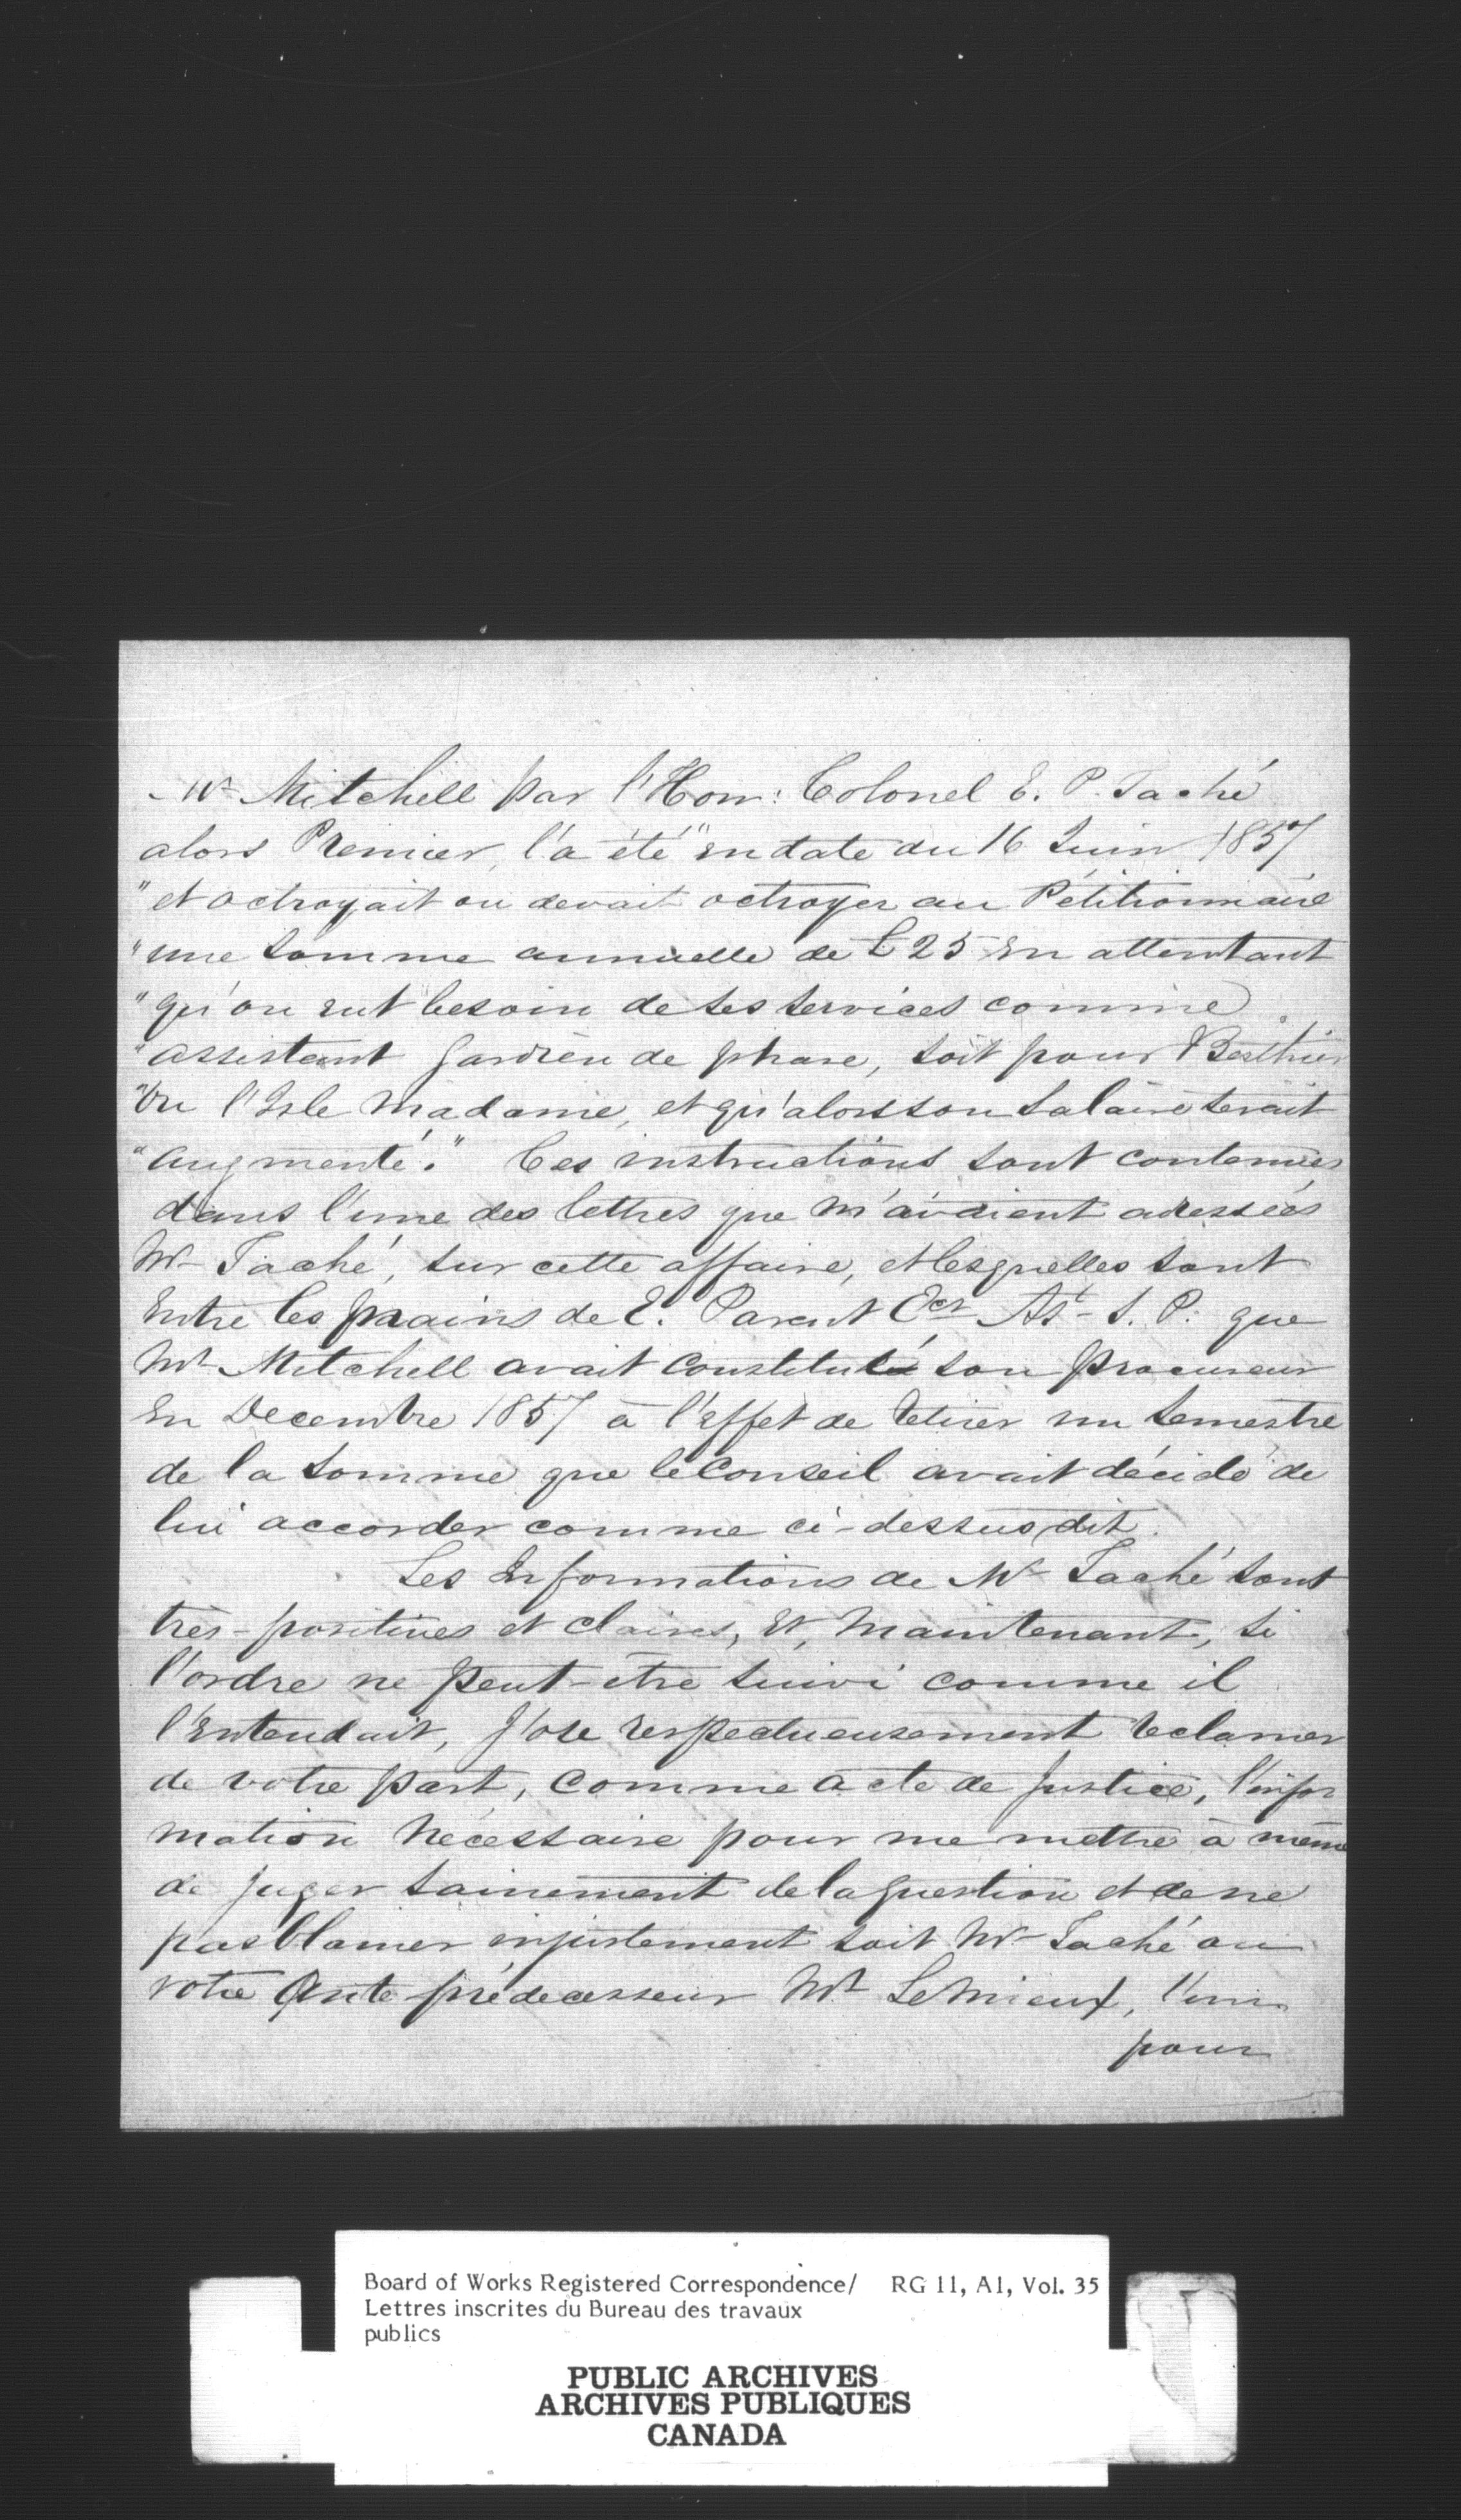 Mr Mitchell par l'Hon: Colonel E. P. Taché
alors Premier, l'a été "en date du 16 Juin 1857
"et octroyait ou devait octroyer au Pétitionnaire
"une somme annuelle de £25 en attentant
"qu'on eut besoin de ses services comme
"assistant gardien de phare, soit pour Berthier
"ou l'Isle Madame, et qu'alors son salaire serait
"augmenté." Ces instructions sont contenues
dans l'une des lettres que m'avaient adressées
Mr Taché, sur cette affaire, et lesquelles sont
entre les mains de E. Parent Ecr Ast S. P. que
Mr Mitchell avait constitué son procureur
en Decembre 1857 à l'effet de retirer un semestre
de la somme que le Conseil avait décidé de
lui accorder comme ci-dessus dit.
Les Informations de Mr Taché sont
très-positives et claires, et, maintenant, si
l'ordre ne peut-être suivi comme il
l'entendait, j'ose respectueusement reclamer
de votre part, comme acte de justice, l'infor
mation nécessaire pour me mettre à même
de juger sainement de la question et de ne
pas blamer injustement soit Mr Taché ou
votre Ante-prédecesseur Mr LeMieux, l'un
pour
Board of Works Registered Correspondence/ RG 11, A1, Vol. 35
Lettres inscrites du Bureau des travaux
publics
PUBLIC ARCHIVES
ARCHIVES PUBLIQUES
CANADA